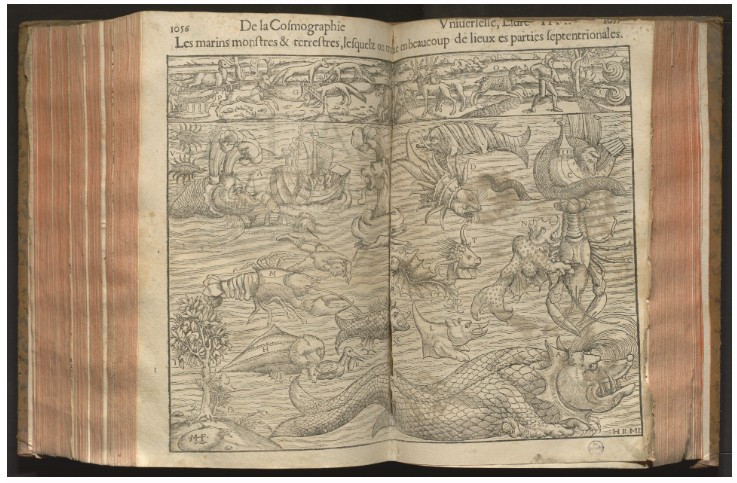 1056
De la Cosmographie
Vniuerselle,
Les marins monstres & terrestres, lesquelz on en beaucoup de lieux es parties septentrionales.
M
H
T